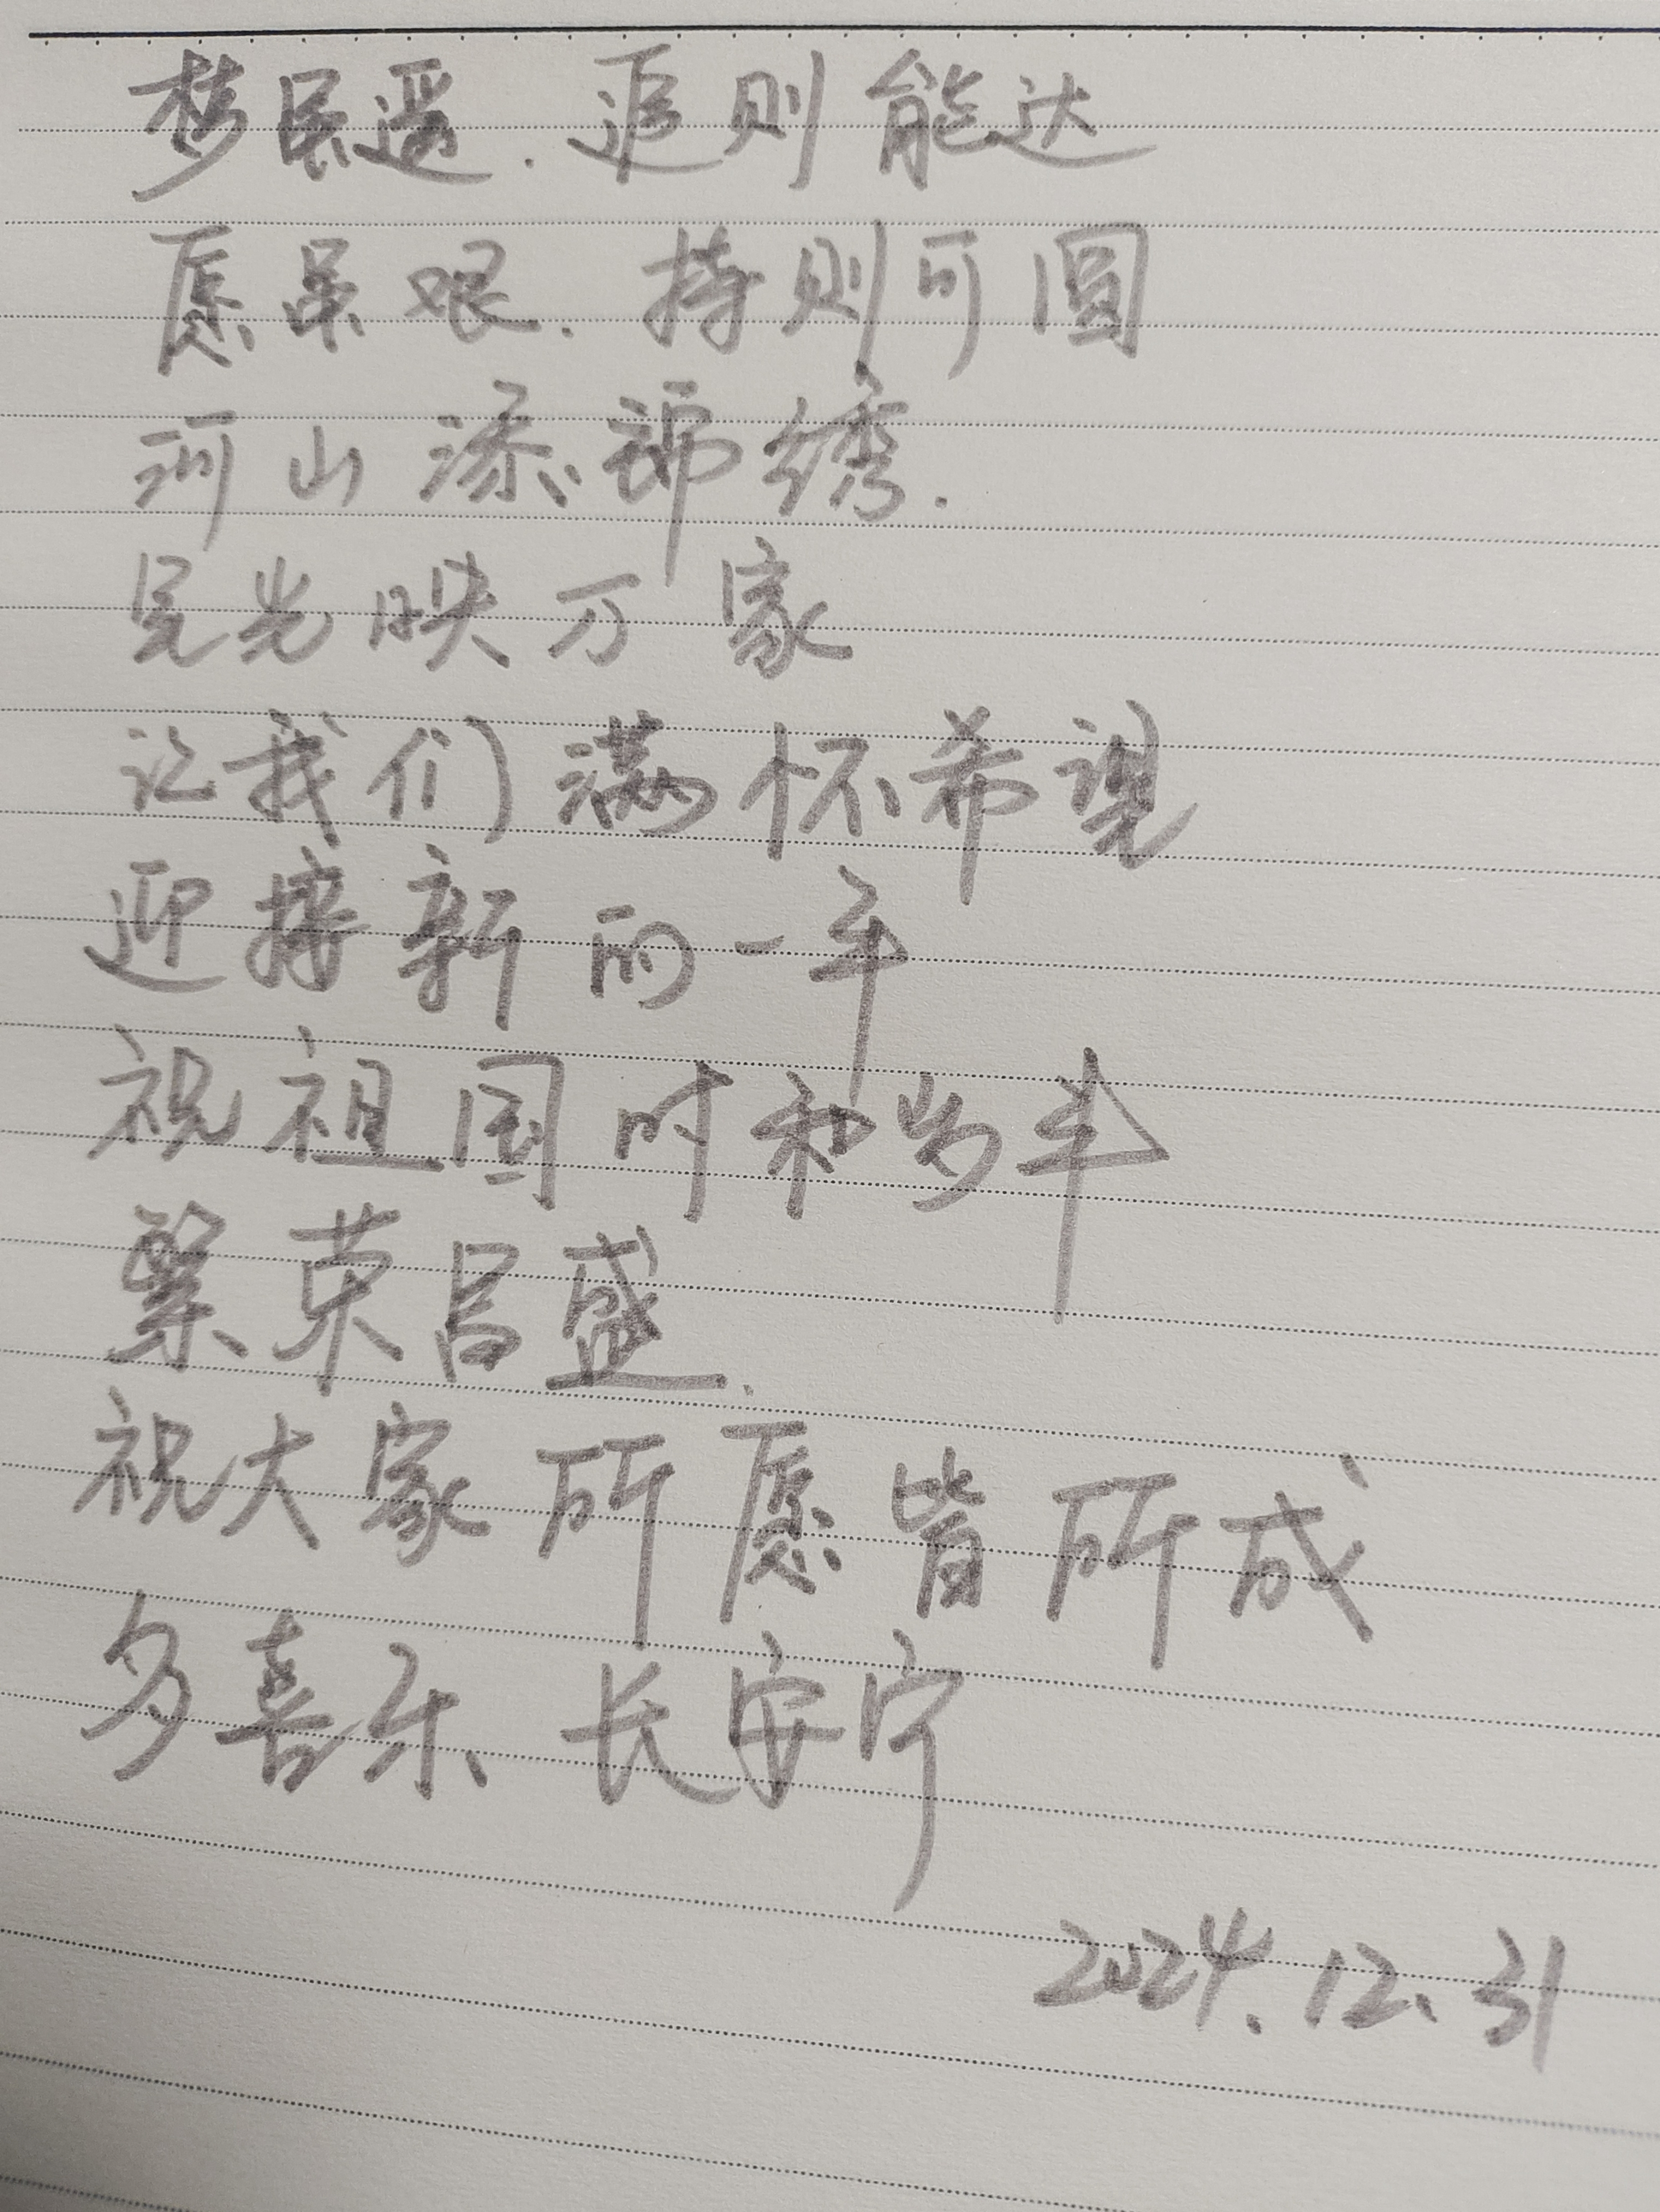 梦虽遥.追则能达
愿虽艰.持则可圆
河山添锦绣.
星光映万家
让我们满怀希望
迎接新的一年
祝祖国时和岁丰
繁荣昌盛.
祝大家所愿皆所成
多喜乐 长安宁
2024.12.31